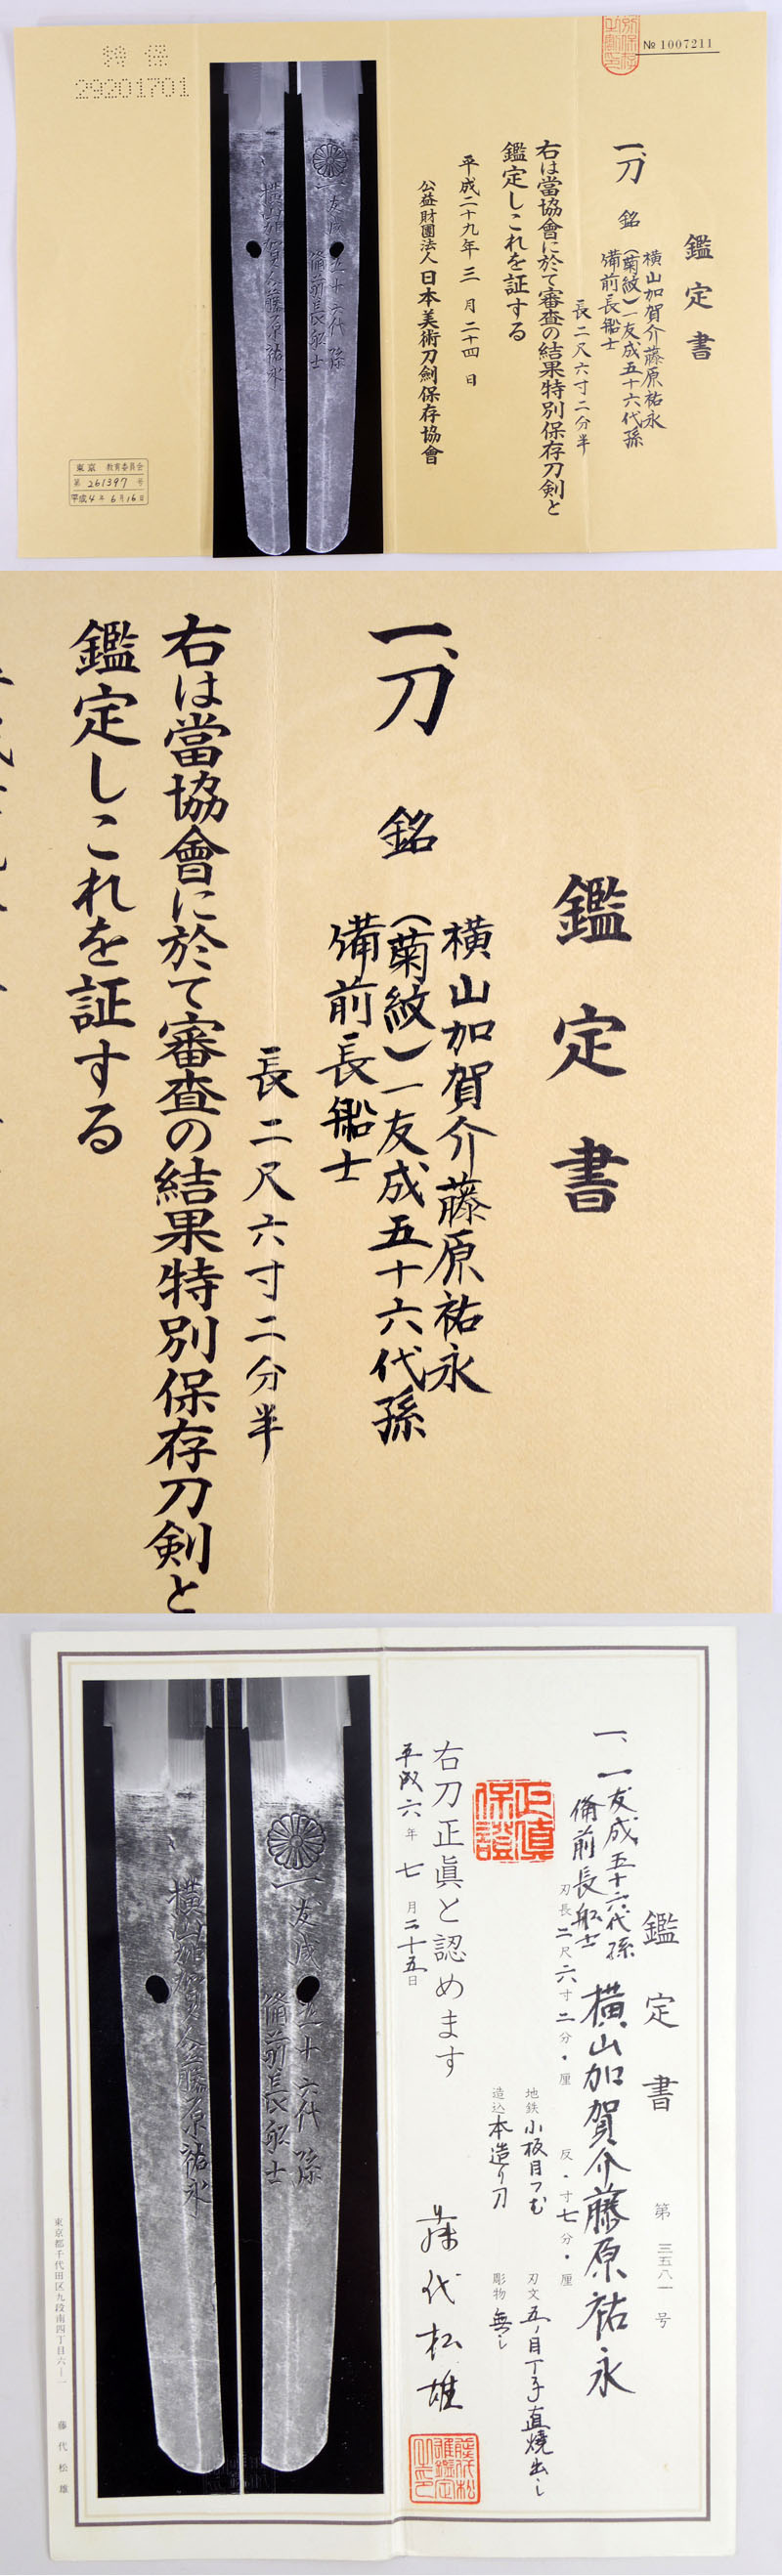 № 1007211
鑑定書
一、刀 銘 横山加賀介藤原祐永
(菊紋)一友成五十六代孫
備前長船士
長 二尺六寸二分半
右は當協會に於て審査の結果特別保存刀剣と
鑑定しこれを証する
平成二十九年 三月 二十四日
公益財團法人 日本美術刀劍保存協會
特保
29201701
横山加賀介藤原祐永
一友成五十六代孫
備前長船士
東京 教育委員会
第 261397 号
平成4年6月16日
鑑定書
一、刀 銘 横山加賀介藤原祐永
(菊紋)一友成五十六代孫
備前長船士
長 二尺六寸二分半
右は當協會に於て審査の結果特別保存刀剣と
鑑定しこれを証する
鑑定書 第三五八一号
一、一友成五十六代孫
備前長船士
横山加賀介藤原祐永
刃長二尺六寸二分・厘 反・寸七分・厘
地鉄 小板目つむ 刃文 五ノ目丁子直焼出し
造込 本造り刀 彫物 無し
正真保證
右刀正眞と認めます
平成六年七月二十五日
藤代松雄
横山加賀介藤原祐永
一友成五十六代孫
備前長船士
東京都千代田区九段南四丁目六ー一 藤代松雄